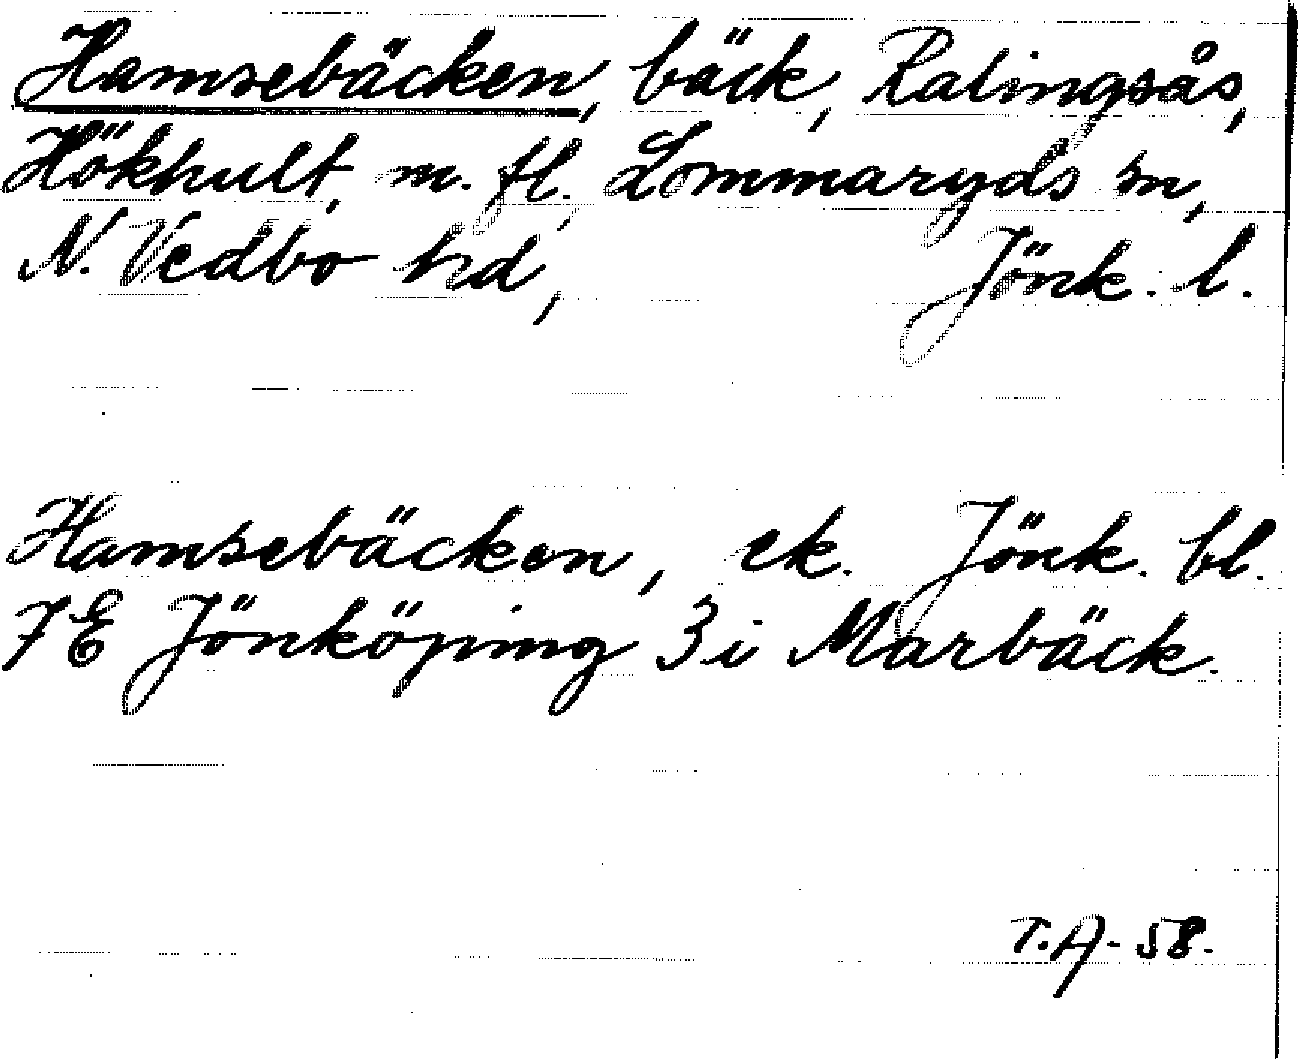 Hamsebäcken, bäck, Ralingsås,
Hökhult, m. fl., Lommaryds sn,
N. Vedbo hd, Jönk. l.
Hamsebäcken, ek. Jönk. bl.
7E Jönköping 3i Marbäck.
T.A- 58.